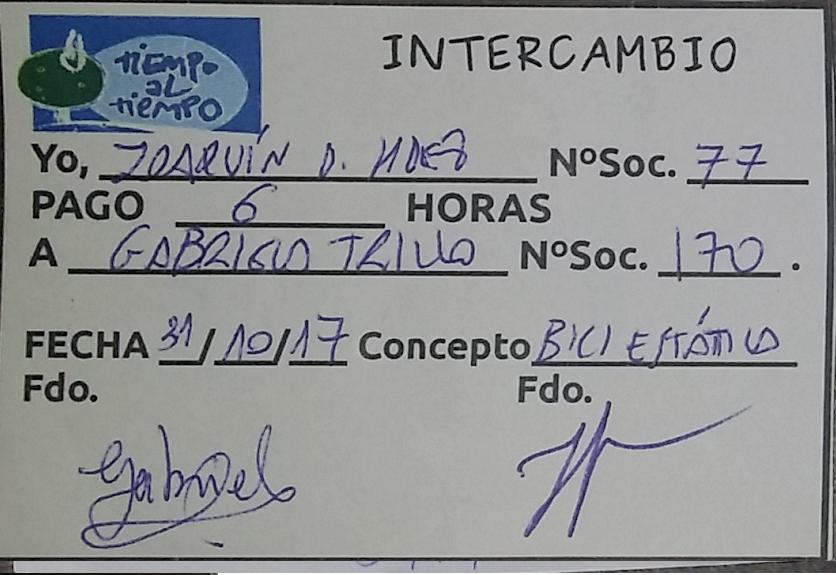 tiempo
al
tiempo
INTERCAMBIO
Yo, JOAQUÍN D. HDEZ NºSoc. 77
PAGO 6 HORAS
A GABRIELA TRILLO NºSoc. 170.
FECHA 31/10/17 Concepto BICI ESTÁTICA
Fdo. Fdo.
Gabriel